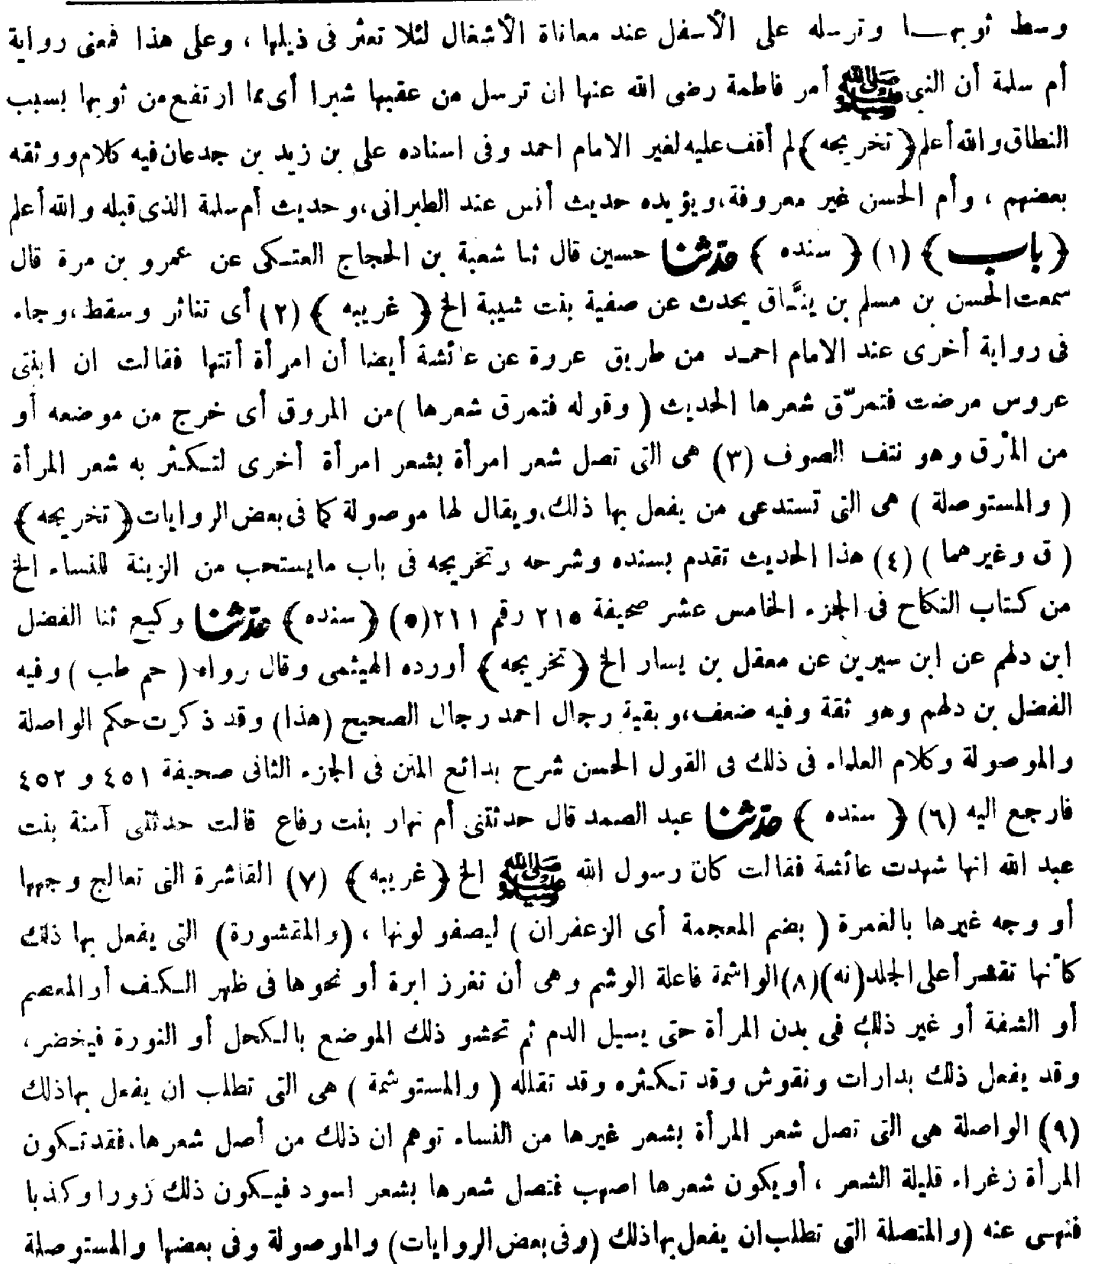 وسط ثوبهـا وترسله على الأسفل عند معاناة الأشغال لئلا تعثر فى ذيلها ، وعلى هذا فمعنى رواية
أم سلمة أن النبى ﷺ أمر فاطمة رضى الله عنها ان ترسل من عقبها شبرا أى مما ارتفع من ثوبها بسبب
النطاق والله أعلم ﴿ تخريجه ﴾ لم أقف عليه لغير الامام احمد وفى اسناده على بن زيد بن جدعان فيه كلام ووثقه
بعضهم ، وأم الحسن غير معروفة، ويؤيده حديث أنس عند الطبرانى، وحديث أم سلمة الذى قبله والله أعلم
﴿ باب ﴾ (١) ﴿ سنده ﴾ حدّثنا حسين قال ثنا شعبة بن الحجاج العتكى عن عمرو بن مرة قال
سمعت الحسن بن مسلم بن ينَّاق يحدث عن صفية بنت شيبة الخ ﴿ غريبه ﴾ (٢) أى تناثر وسقط، وجاء
فى رواية أخرى عند الامام احمد من طريق عروة عن عائشة أيضا أن امرأة أتتها فقالت ان ابنتى
عروس مرضت فتمرّق شعرها الحديث ( وقوله فتمرق شعرها ) من المروق أى خرج من موضعه أو
من المَرْق وهو نتف الصوف (٣) هى التى تصل شعر امرأة بشعر امرأة أخرى لتكثر به شعر المرأة
( والمستوصلة ) هى التى تستدعى من يفعل بها ذلك، ويقال لها موصولة كما فى بعض الروايات ﴿ تخريجه ﴾
( ق وغيرهما ) (٤) هذا الحديث تقدم بسنده وشرحه وتخريجه فى باب مايستحب من الزينة للنساء الخ
من كتاب النكاح فى الجزء الخامس عشر صحيفة ٢١٥ رقم ٢١١ (٥) ﴿ سنده ﴾ حدّثنا وكيع ثنا الفضل
ابن دلهم عن ابن سيرين عن معقل بن يسار الخ ﴿ تخريجه ﴾ أورده الهيثمى وقال رواه ( حم طب ) وفيه
الفضل بن دلهم وهو ثقة وفيه ضعف، وبقية رجال احمد رجال الصحيح (هذا) وقد ذكرت حكم الواصلة
والموصولة وكلام العلماء فى ذلك فى القول الحسن شرح بدائع المنن فى الجزء الثانى صحيفة ٤٥١ و ٤٥٢
فارجع اليه (٦) ﴿ سنده ﴾ حدّثنا عبد الصمد قال حدثتنى أم نهار بنت رفاع قالت حدثتنى آمنة بنت
عبد الله انها شهدت عائشة فقالت كان رسول الله ﷺ الخ ﴿ غريبه ﴾ (٧) القاشرة التى تعالج وجهها
أو وجه غيرها بالغمرة ( بضم المعجمة أى الزعفران ) ليصفو لونها ، (والمقشورة) التى يفعل بها ذلك
كأنها تقشر أعلى الجلد (نه) (٨) الواشمة فاعلة الوشم وهى أن تغرز ابرة أو نحوها فى ظهر الكف أو المعصم
أو الشفة أو غير ذلك فى بدن المرأة حتى يسيل الدم ثم تحشو ذلك الموضع بالكحل أو النورة فيخضر،
وقد يفعل ذلك بدارات ونقوش وقد تكثره وقد تقلله ( والمستوشمة ) هى التى تطلب ان يفعل بها ذلك
(٩) الواصلة هى التى تصل شعر المرأة بشعر غيرها من النساء توهم ان ذلك من أصل شعرها، فقد تكون
المرأة زعراء قليلة الشعر ، أويكون شعرها اصهب فتصل شعرها بشعر اسود فيكون ذلك زورا وكذبا
فنهى عنه (والمتصلة التى تطلب ان يفعل بها ذلك (وفى بعض الروايات) والموصولة وفى بعضها والمستوصلة